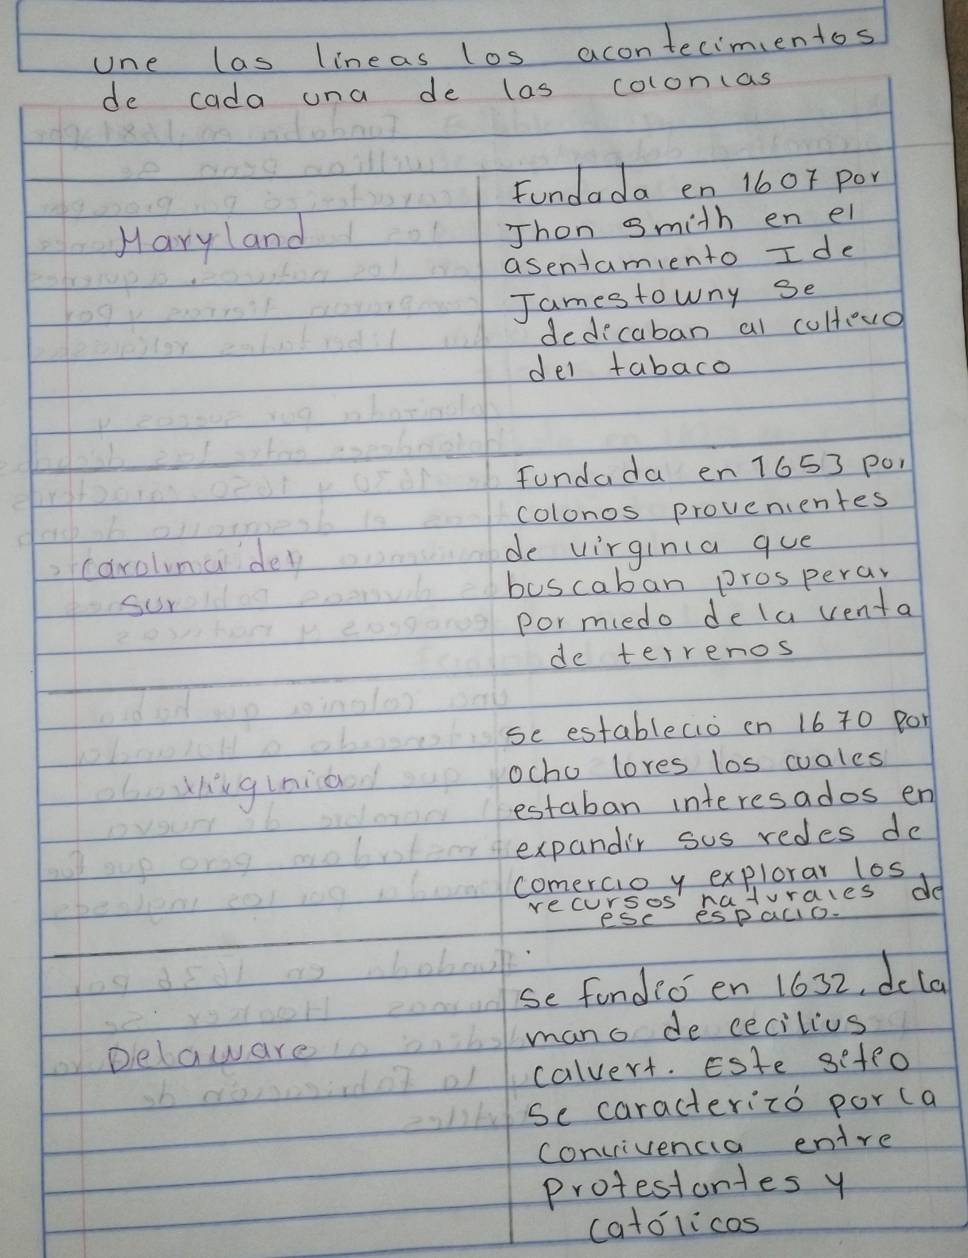 une las lineas los acontecimientos
de cada una de las colonias
Maryland
Fundada en 1607 por
Jhon Smith en el
asentamiento I de
Jamestowny se
dedicaban al coltivo
del tabaco
carolina del
sur
Fundada en 1653 por
colonos provenientes
de virginia que
buscaban prosperar
por miedo de la venta
de terrenos
virginia
se estableció en 1670 por
ocho lores los cuales
estaban interesados en
expandir sus redes de
comercio y explorar los
recursos naturales de
ese espacio.
Delaware
se fundió en 1632, de la
mano de cecilius
calvert. Este sitio
se caracterizó por la
convivencia entre
protestantes y
católicos